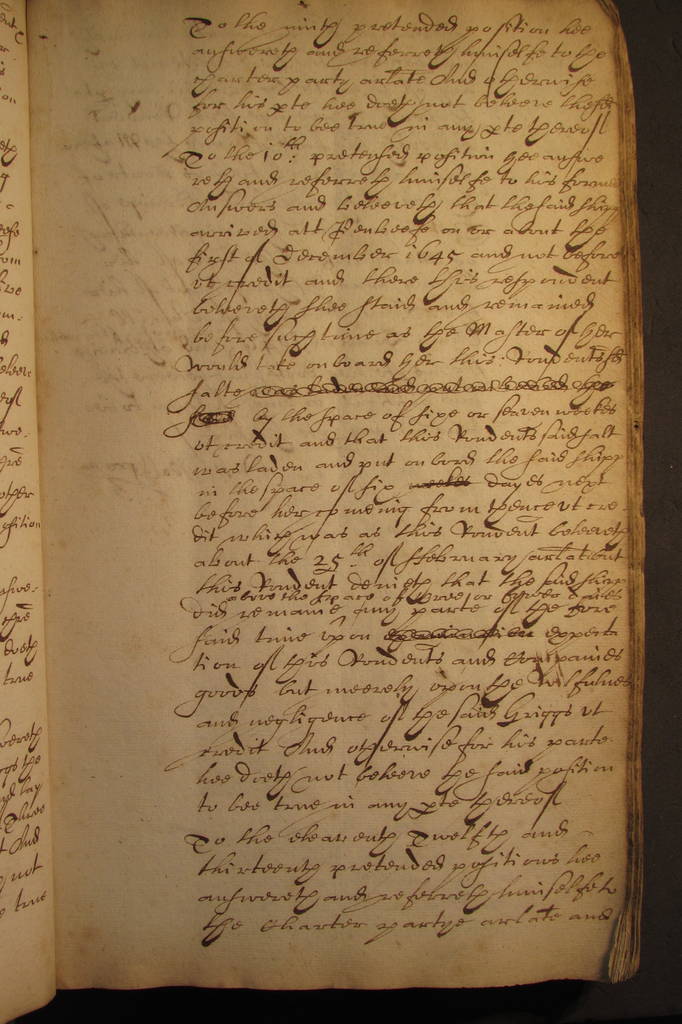 To the ninth pretended position hee
answereth and referreth himselfe to the
charter party arlate And otherwise
for his pte hee doeth not beleeve these
position to bee true in any pte thereof
To the 10th: pretensed position hee answe
reth and referreth himselfe to his former
Answers and beleeveth that the said shipp
arrived att Penbeefe on or about the
first of December 1645 and not before
ut credit and there this respondent
beleeveth shee staid and remained
before such time as the Master of her
would take onboard her this Rondents sd
salte was laden and put on board the
by the space of sixe or seaven weekes
ut credit and that this Rondents said salt
was laden and put on bord the said shipp
in the space of six weekes dayes next
before her comeing from thence ut cre
dit which was as this Rondent beleeveth
about the 25th of February arlate but
this Rondent denieth that the said shipp
above the space of three or fower daies
did remaine any parte of the fore
said time upon expecta
tion of this Rondents and Companies
goods but meerely upon the wilfulnes
and negligence of the said Griggs ut
credit And otherwise for his parte
hee doeth not beleeve the said position
to bee true in any pte thereof
To the eleaventh Twelfth and
thirteenth pretended positions hee
answereth and referreth himselfe to
the Charter partye arlate and